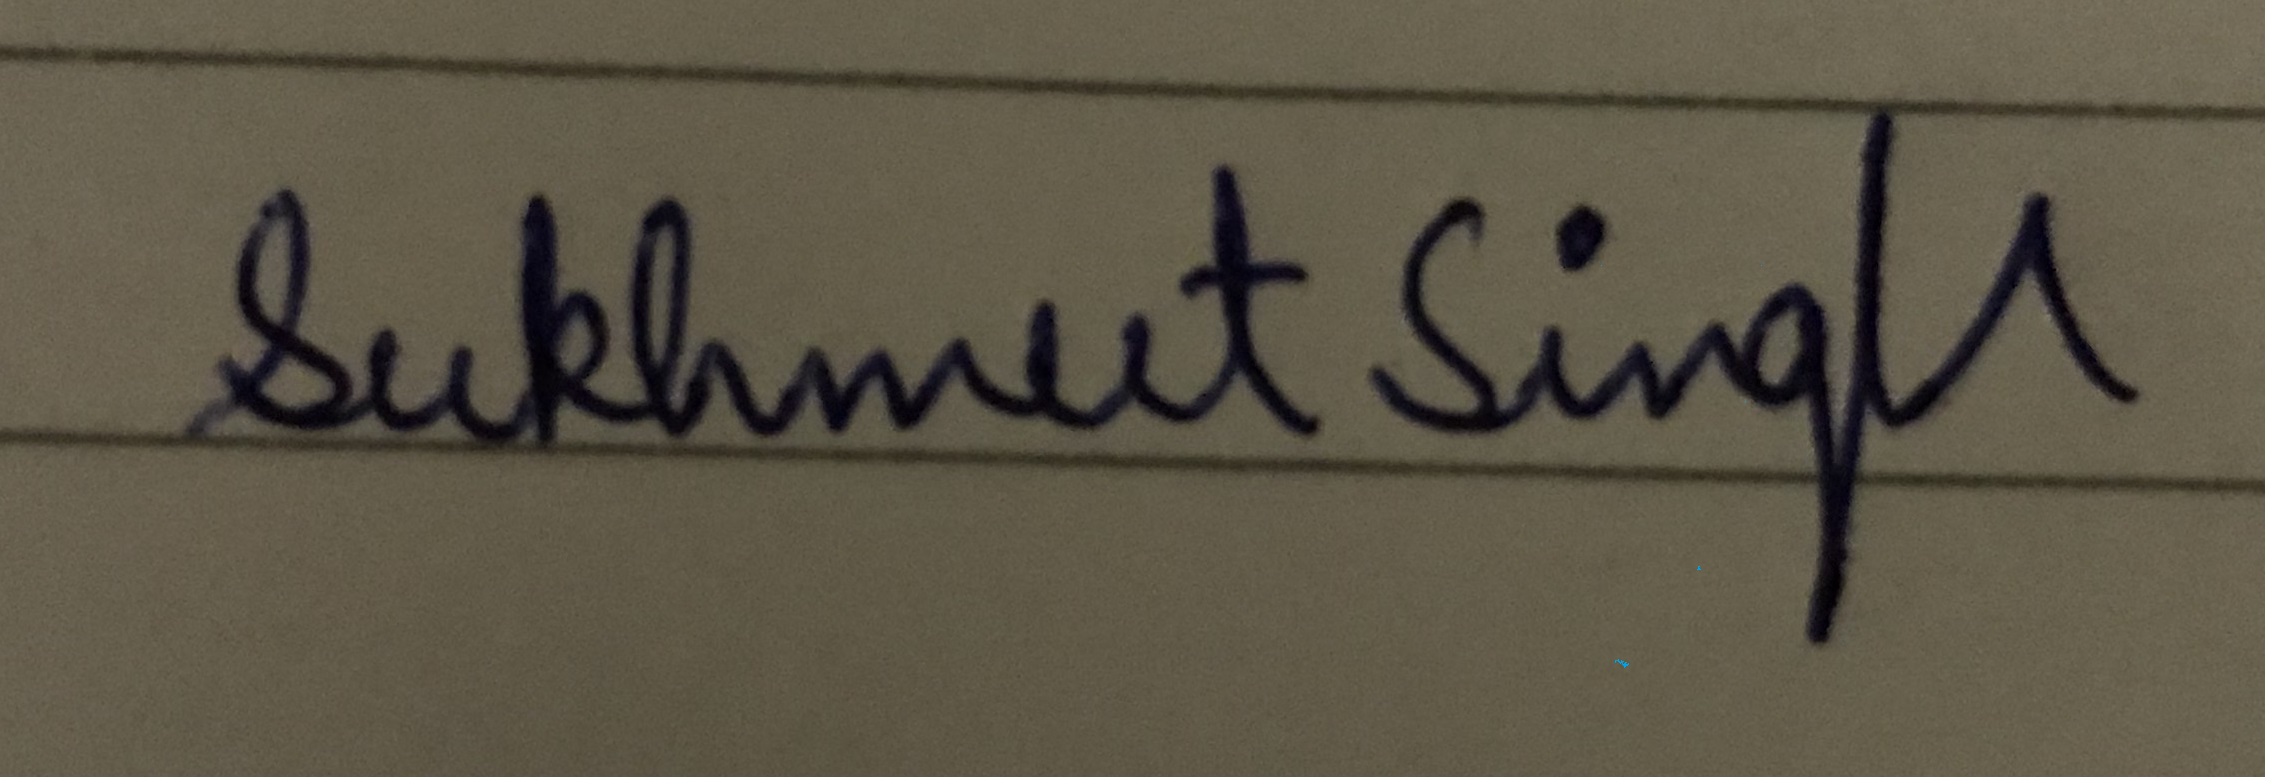 Sukhmeet Singh